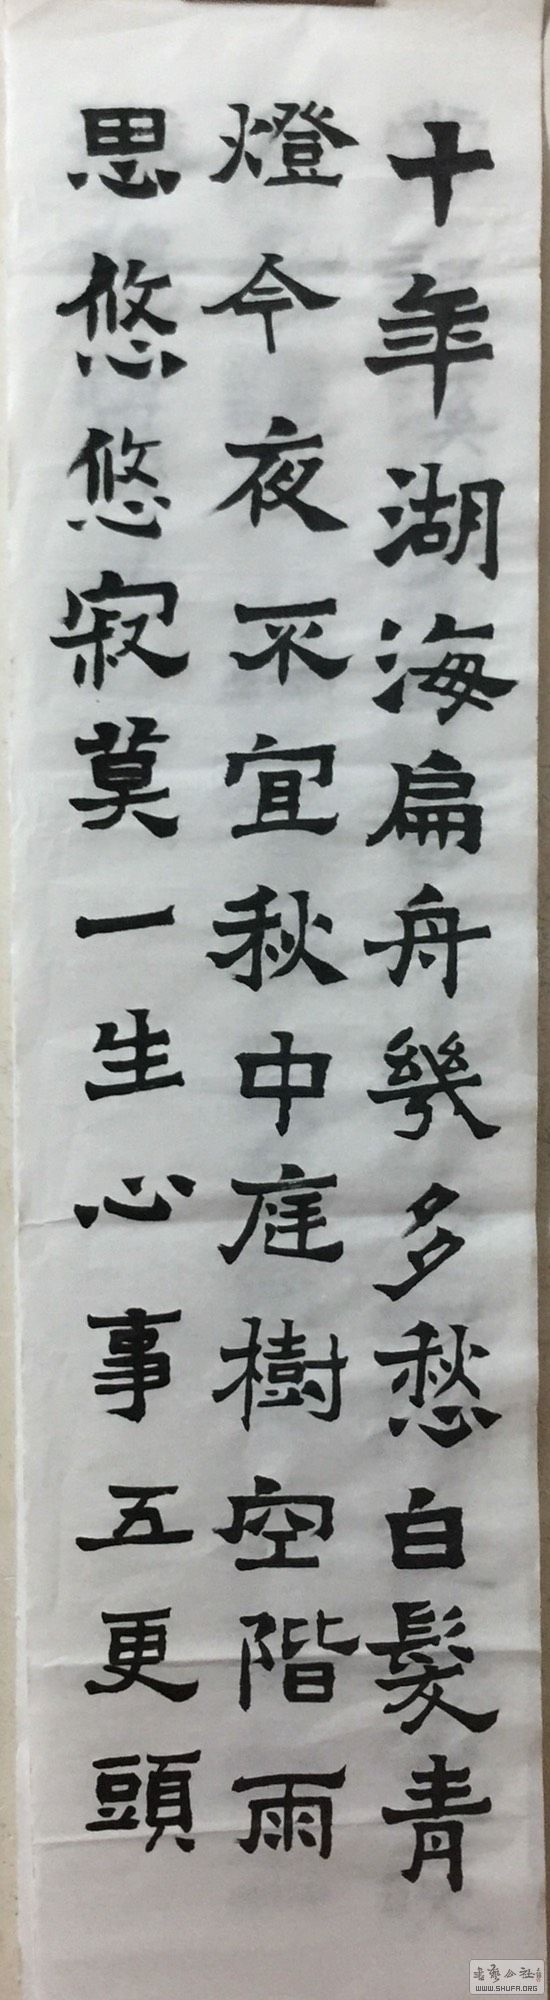 十年湖海扁舟幾多愁白髮青
燈今夜不宜秋中庭樹空階雨
思悠悠寂莫一生心事五更頭
書藝公社
WWW.SHUFA.ORG